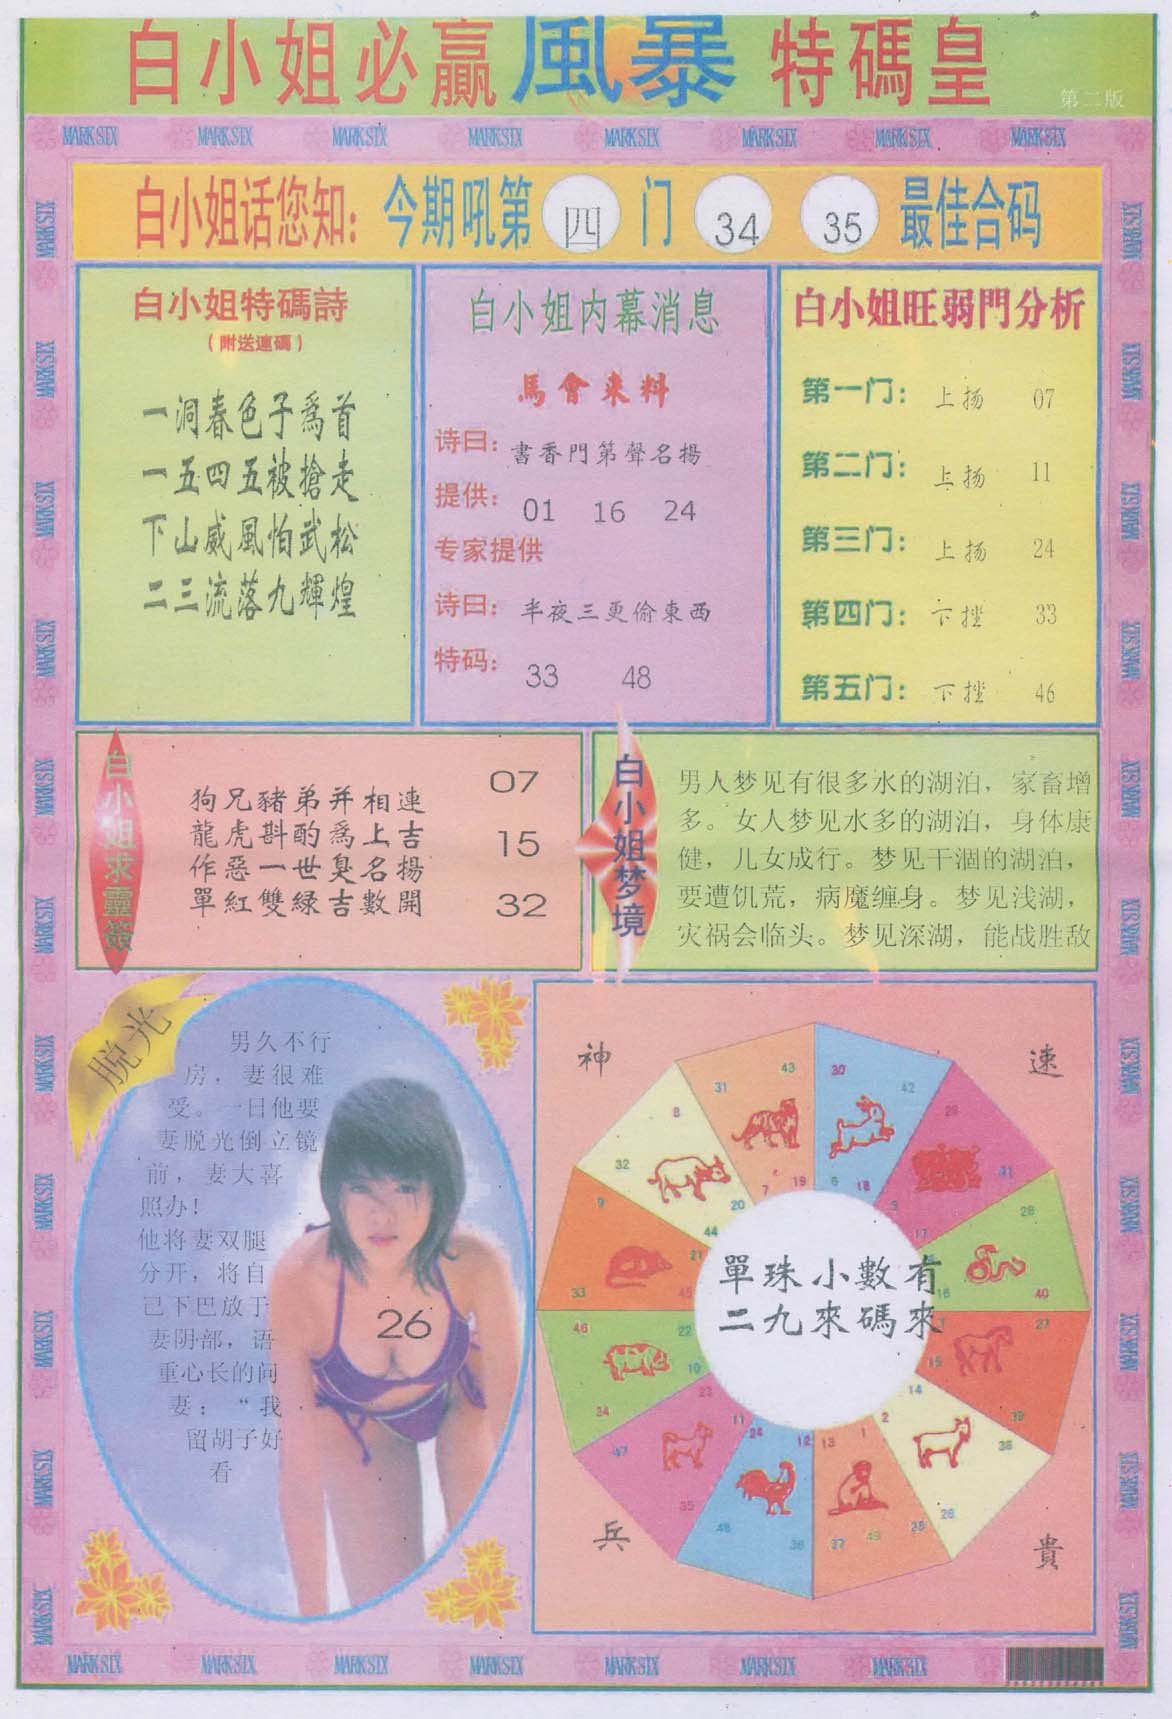 白小姐必贏風暴特碼皇
第二版
MARK SIX MARK SIX MARK SIX MARK SIX MARK SIX MARK SIX MARK SIX MARK SIX
白小姐话您知：今期吼第 四 门 34 35 最佳合码
白小姐特碼詩
（附送連碼）
一洞春色子爲首
一五四五被搶走
下山威風怕武松
二三流落九輝煌
白小姐内幕消息
馬會来料
诗曰：書香門第聲名揚
提供：01 16 24
专家提供
诗曰：半夜三更偷東西
特码：33 48
白小姐旺弱門分析
第一门：上扬 07
第二门：上扬 11
第三门：上扬 24
第四门：下挫 33
第五门：下挫 46
白小姐求靈簽
狗兄豬弟并相連
龍虎斟酌爲上吉
作惡一世臭名揚
單紅雙緑吉數開
07
15
32
白小姐梦境
男人梦见有很多水的湖泊，家畜增
多。女人梦见水多的湖泊，身体康
健，儿女成行。梦见干涸的湖泊，
要遭饥荒，病魔缠身。梦见浅湖，
灾祸会临头。梦见深湖，能战胜敌
脱光
男久不行
房，妻很难
受。一日他要
妻脱光倒立镜
前，妻大喜
照办！
他将妻双腿
分开，将自
己下巴放于
妻阴部，语
重心长的问
妻：“我
留胡子好
看
26
神
速
兵
貴
單珠小數有
二九來碼來
31 43 7 19
30 42 6 18
29 41 17
28 40 16
27 39 15
14 2 38 26
13 1 37 49 25
24 12 48 36
23 11 47 35
46 22 10 34
9 21 33 45
8 32 20 44
MARK SIX MARK SIX MARK SIX MARK SIX MARK SIX MARK SIX MARK SIX